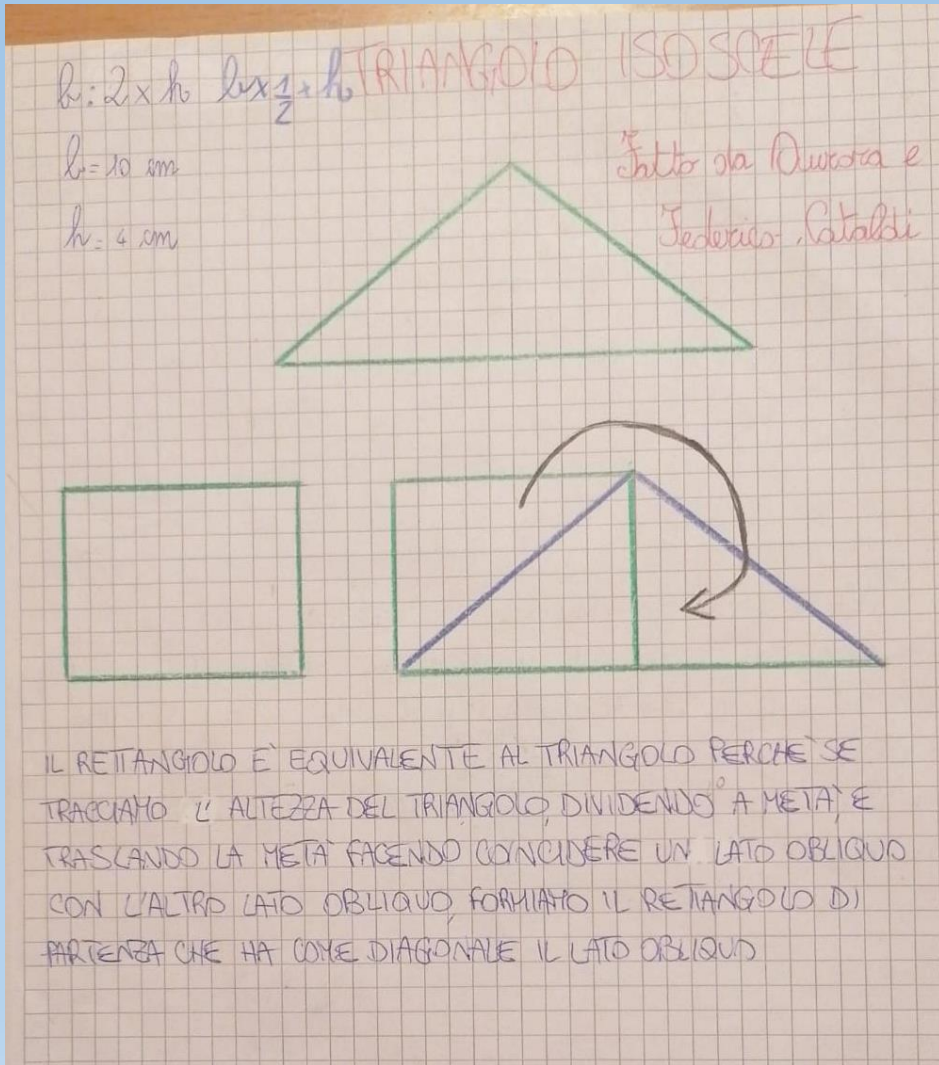 b:2×h b×1/2×h TRIANGOLO ISOSCELE
b=10 cm
h=4 cm
Fatto da Aurora e
Federico Cataldi
IL RETTANGOLO E' EQUIVALENTE AL TRIANGOLO PERCHE' SE
TRACCIAMO L'ALTEZZA DEL TRIANGOLO, DIVIDENDO A META' E
TRASLANDO LA META' FACENDO COINCIDERE UN LATO OBLIQUO
CON L'ALTRO LATO OBLIQUO, FORMIAMO IL RETTANGOLO DI
PARTENZA CHE HA COME DIAGONALE IL LATO OBLIQUO